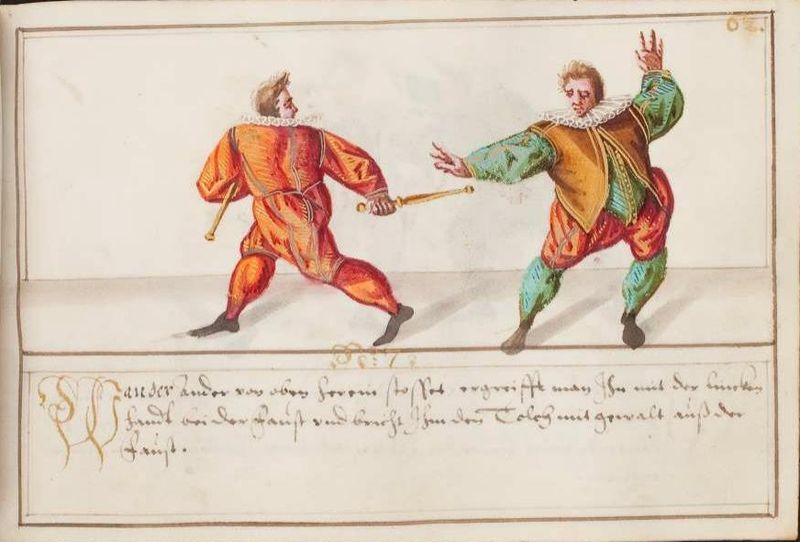 62.
Wan der ander von oben herein stosset, ergreifft man Ihn mit der lincken
handt bei der faust vnd bricht Ihm den Tolch mit gewalt auß der
faust.